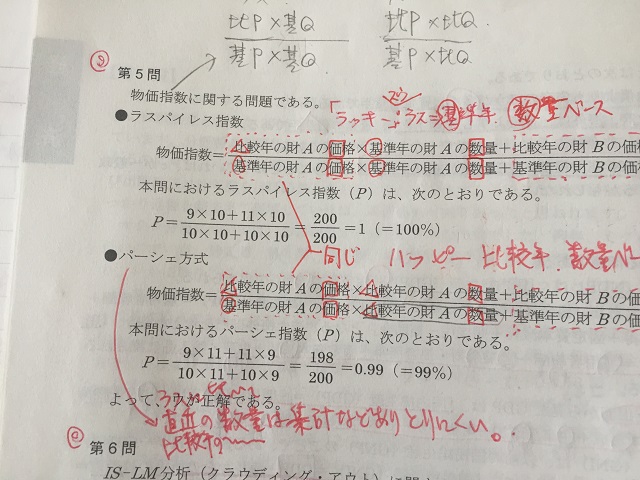 比P×基Q 比P×比Q
基P×基Q 基P×比Q
第5問
物価指数に関する問題である。
●ラスパイレス指数
「ラッキー」ラス=基準年、数量ベース
物価指数=比較年の財Aの価格×基準年の財Aの数量+比較年の財Bの価
基準年の財Aの価格×基準年の財Aの数量+基準年の財Bの価
本問におけるラスパイレス指数(P)は、次のとおりである。
P=9×10+11×10/10×10+10×10=200/200=1(=100%)
●パーシェ方式
同じ
ハッピー 比較年、数量ベー
物価指数=比較年の財Aの価格×比較年の財Aの数量+比較年の財Bの価
基準年の財Aの価格×比較年の財Aの数量+基準年の財Bの価
本問におけるパーシェ指数(P)は、次のとおりである。
P=9×11+11×9/10×11+10×9=198/200=0.99(=99%)
よって、ウが正解である。
直近の数量は集計などありとりにくい。
比較年の
第6問
IS-LM分析(クラウディング・アウト)に関